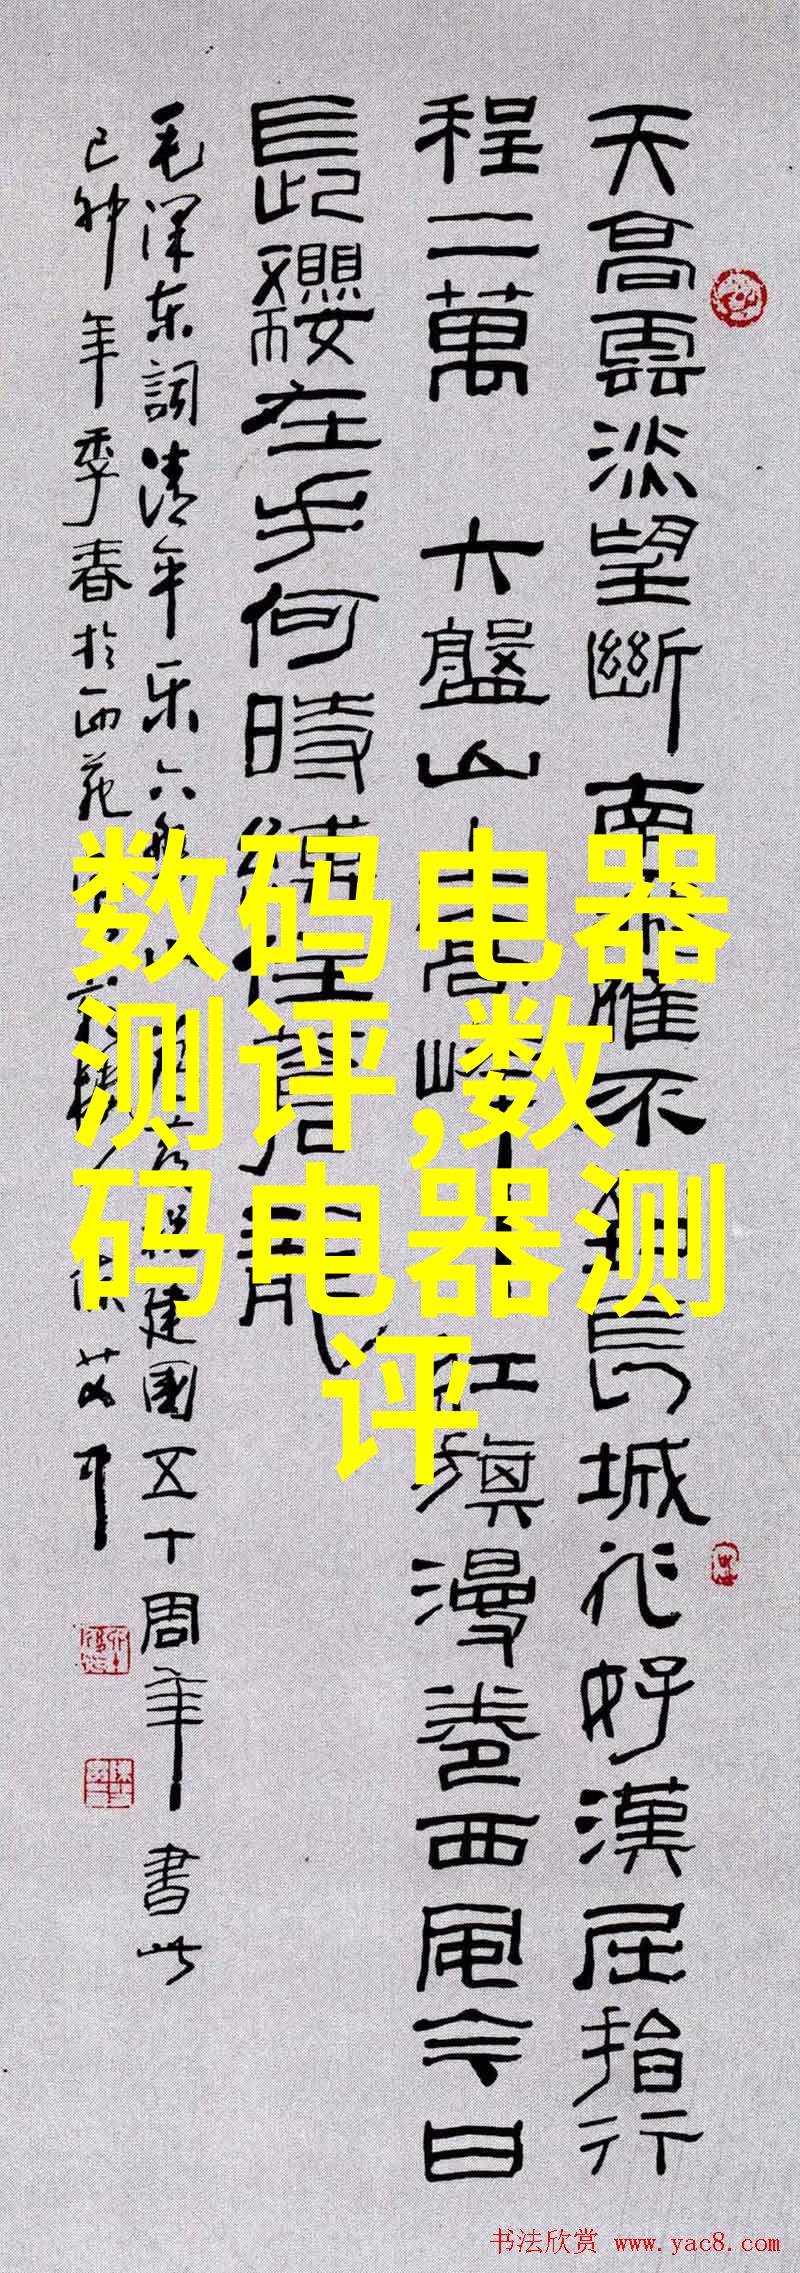 天高雲淡望斷南雁不長城非好漢屈指行
程二萬 六盤山上高峰紅旗漫卷西風今日
長纓在手何時縛住蒼龍
毛泽东詞清平乐六盤山祝建國五十周年書此
己卯年季春於西苑
数码电器
测评,数
码电器测
评
书法欣赏 www.yac8.com